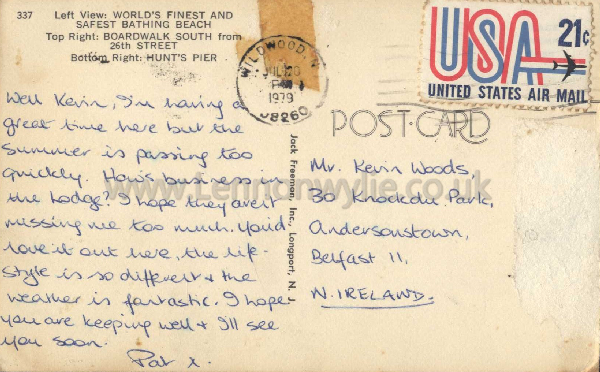 337 Left View: WORLD'S FINEST AND
SAFEST BATHING BEACH
Top Right: BOARDWALK SOUTH from
26th STREET
Bottom Right: HUNT'S PIER
WILDWOOD, N
JUL
PM
1979
08260
USA 21c
UNITED STATES AIR MAIL
POST CARD
Well Kevin, I'm having a
great time here but the
summer is passing too
quickly. How's business in
the Lodge? I hope they aren't
missing me too much. You'd
love it out here, the life-
style is so different & the
weather is fantastic. I hope
you are keeping well & I'll see
you soon.
Pat x.
Jack Freeman, Inc., Longport, N. J.
Mr. Kevin Woods,
30 Knockdu Park,
Andersonstown,
Belfast 11,
N. IRELAND.
www.Lennonwylie.co.uk